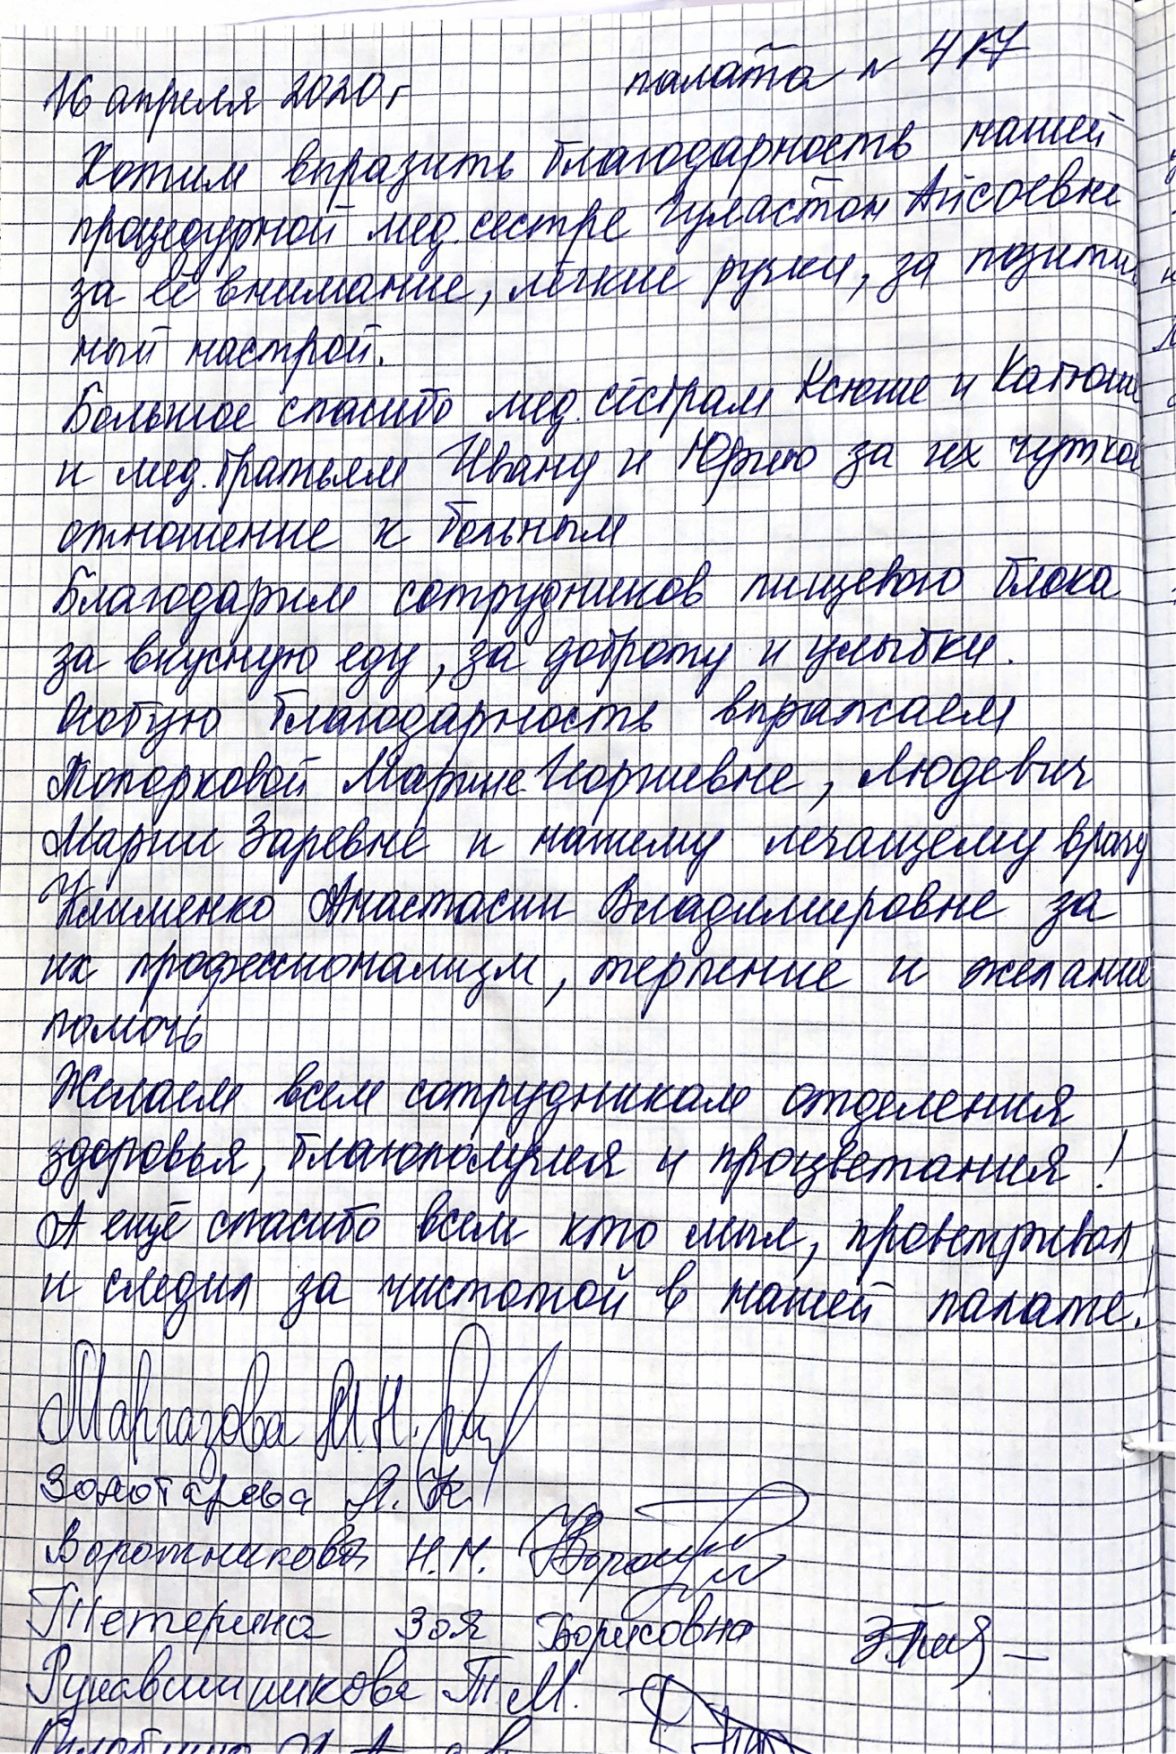 16 апреля 2020 г палата № 417
Хотим выразить благодарность нашей
процедурной мед.сестре Гуластон Айсоевне
за её внимание, лёгкие ручки, за позитив
ный настрой.
Большое спасибо мед.сёстрам Ксюше и Катюше
и мед.братьям Ивану и Юрию за их чуткое
отношение к больным
Благодарим сотрудников пищевого блока
за вкусную еду, за доброту и улыбки.
Особую благодарность выражаем
Топорковой Марине Игоревне, Людевич
Марии Заревне и нашему лечащему врачу
Клименко Анастасии Владимировне за
их профессионализм, терпение и желание
помочь
Желаем всем сотрудникам отделения
здоровья, благополучия и процветания!
А ещё спасибо всем кто мыл, проветривал
и следил за чистотой в нашей палате.
Маргазова М.Н.
Золотарева Л. К.
Воротникова Н.М.
Тетерина Зоя Борисовна
Рукавишникова Т.М.